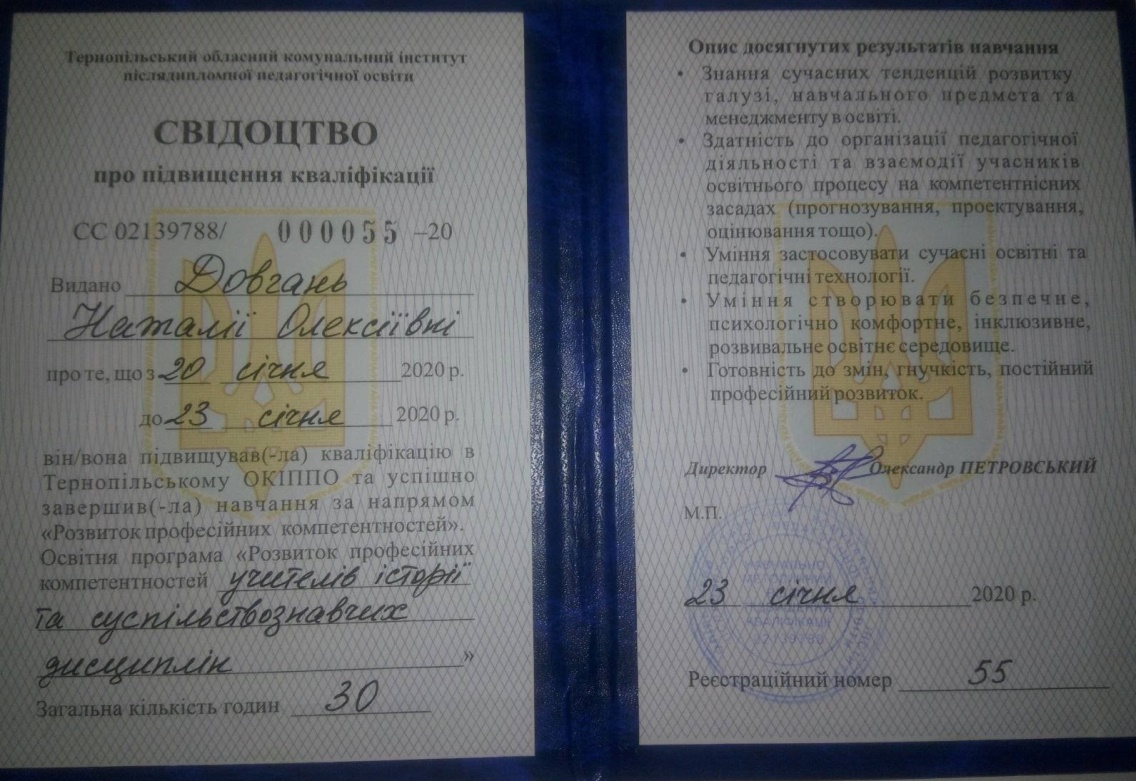 Тернопільський обласний комунальний інститут
післядипломної педагогічної освіти
СВІДОЦТВО
про підвищення кваліфікації
СС 02139788/ 000055 –20
Видано Довгань
Наталії Олексіївні
про те, що з 20 січня 2020 р.
до 23 січня 2020 р.
він/вона підвищував(-ла) кваліфікацію в
Тернопільському ОКІППО та успішно
завершив(-ла) навчання за напрямом
«Розвиток професійних компетентностей».
Освітня програма «Розвиток професійних
компетентностей учителів історії
та суспільствознавчих
дисциплін »
Загальна кількість годин 30
Опис досягнутих результатів навчання
• Знання сучасних тенденцій розвитку
галузі, навчального предмета та
менеджменту в освіті.
• Здатність до організації педагогічної
діяльності та взаємодії учасників
освітнього процесу на компетентнісних
засадах (прогнозування, проектування,
оцінювання тощо).
• Уміння застосовувати сучасні освітні та
педагогічні технології.
• Уміння створювати безпечне,
психологічно комфортне, інклюзивне,
розвивальне освітнє середовище.
• Готовність до змін, гнучкість, постійний
професійний розвиток.
Директор Олександр ПЕТРОВСЬКИЙ
М.П.
НАВЧАЛЬНО
МЕТОДИЧНИЙ
КВАЛІФІКАЦІЇ
02139788
23 січня 2020 р.
Реєстраційний номер 55